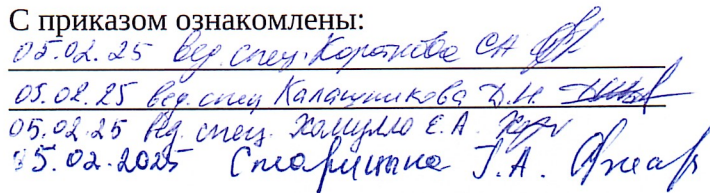 С приказом ознакомлены:
05.02.25 вед. спец. Короткова СН
05.02.25 вед. спец Калашникова Д.Н.
05.02.25 вед. спец. Е.А.
05.02.2025 Г.А.